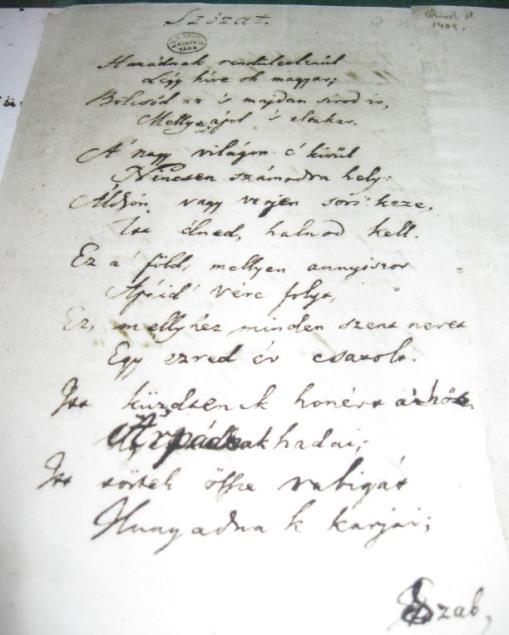 Szózat.
Hazádnak rendületlenűl
Légy híve oh magyar;
Bölcsőd az és majdan sírod is,
Melly ápol és eltakar.
A' nagy világon e' kivűl
Nincsen számodra hely;
Áldjon vagy verjen sors keze,
Itt élned, halnod kell.
Ez a' föld, mellyen annyiszor
Apáid' vére folyt,
Ez, mellyhez minden szent nevet
Egy ezred év csatolt.
Itt küzdtenek honért a' hős
Árpádnak hadai;
Itt törtek össze rabigát
Hunyadnak karjai;
Szab,